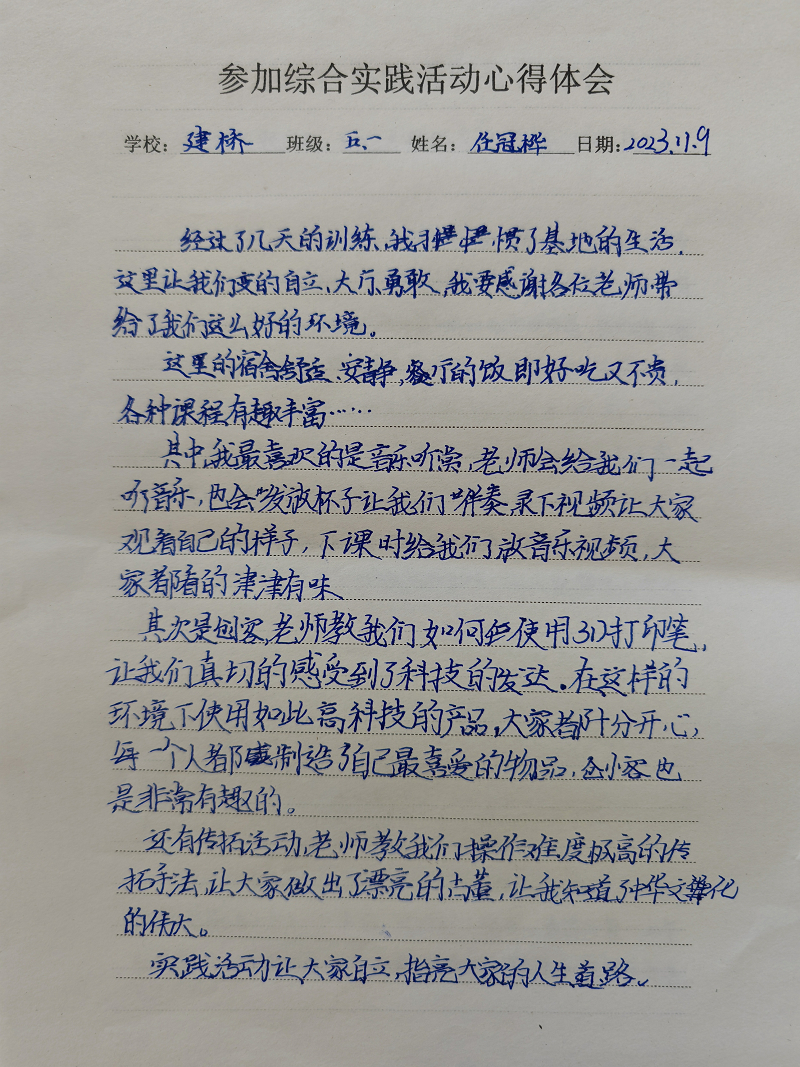 参加综合实践活动心得体会
学校：建桥 班级：五、一 姓名：任冠桦 日期：2023.11.9
经过了几天的训练，我习惯了基地的生活，
这里让我们变的自立、大方、勇敢，我要感谢各位老师带
给了我们这么好的环境。
这里的宿舍舒适、安静，餐厅的饭即好吃又不贵，
各种课程有趣丰富……
其中，我最喜欢的是音乐听赏，老师会给我们一起
听音乐，也会发放杯子让我们伴奏，录下视频让大家
观看自己的样子，下课时给我们放音乐视频，大
家都看的津津有味
其次是创客，老师教我们如何使用3D打印笔，
让我们真切的感受到了科技的发达。在这样的
环境下使用如此高科技的产品，大家都十分开心，
每一个人都制造了自己最喜爱的物品，创客也
是非常有趣的。
还有传拓活动，老师教我们操作难度极高的传
拓手法，让大家做出了漂亮的古董，让我知道了中华文化
的伟大。
实践活动让大家自立，指亮大家的人生道路。